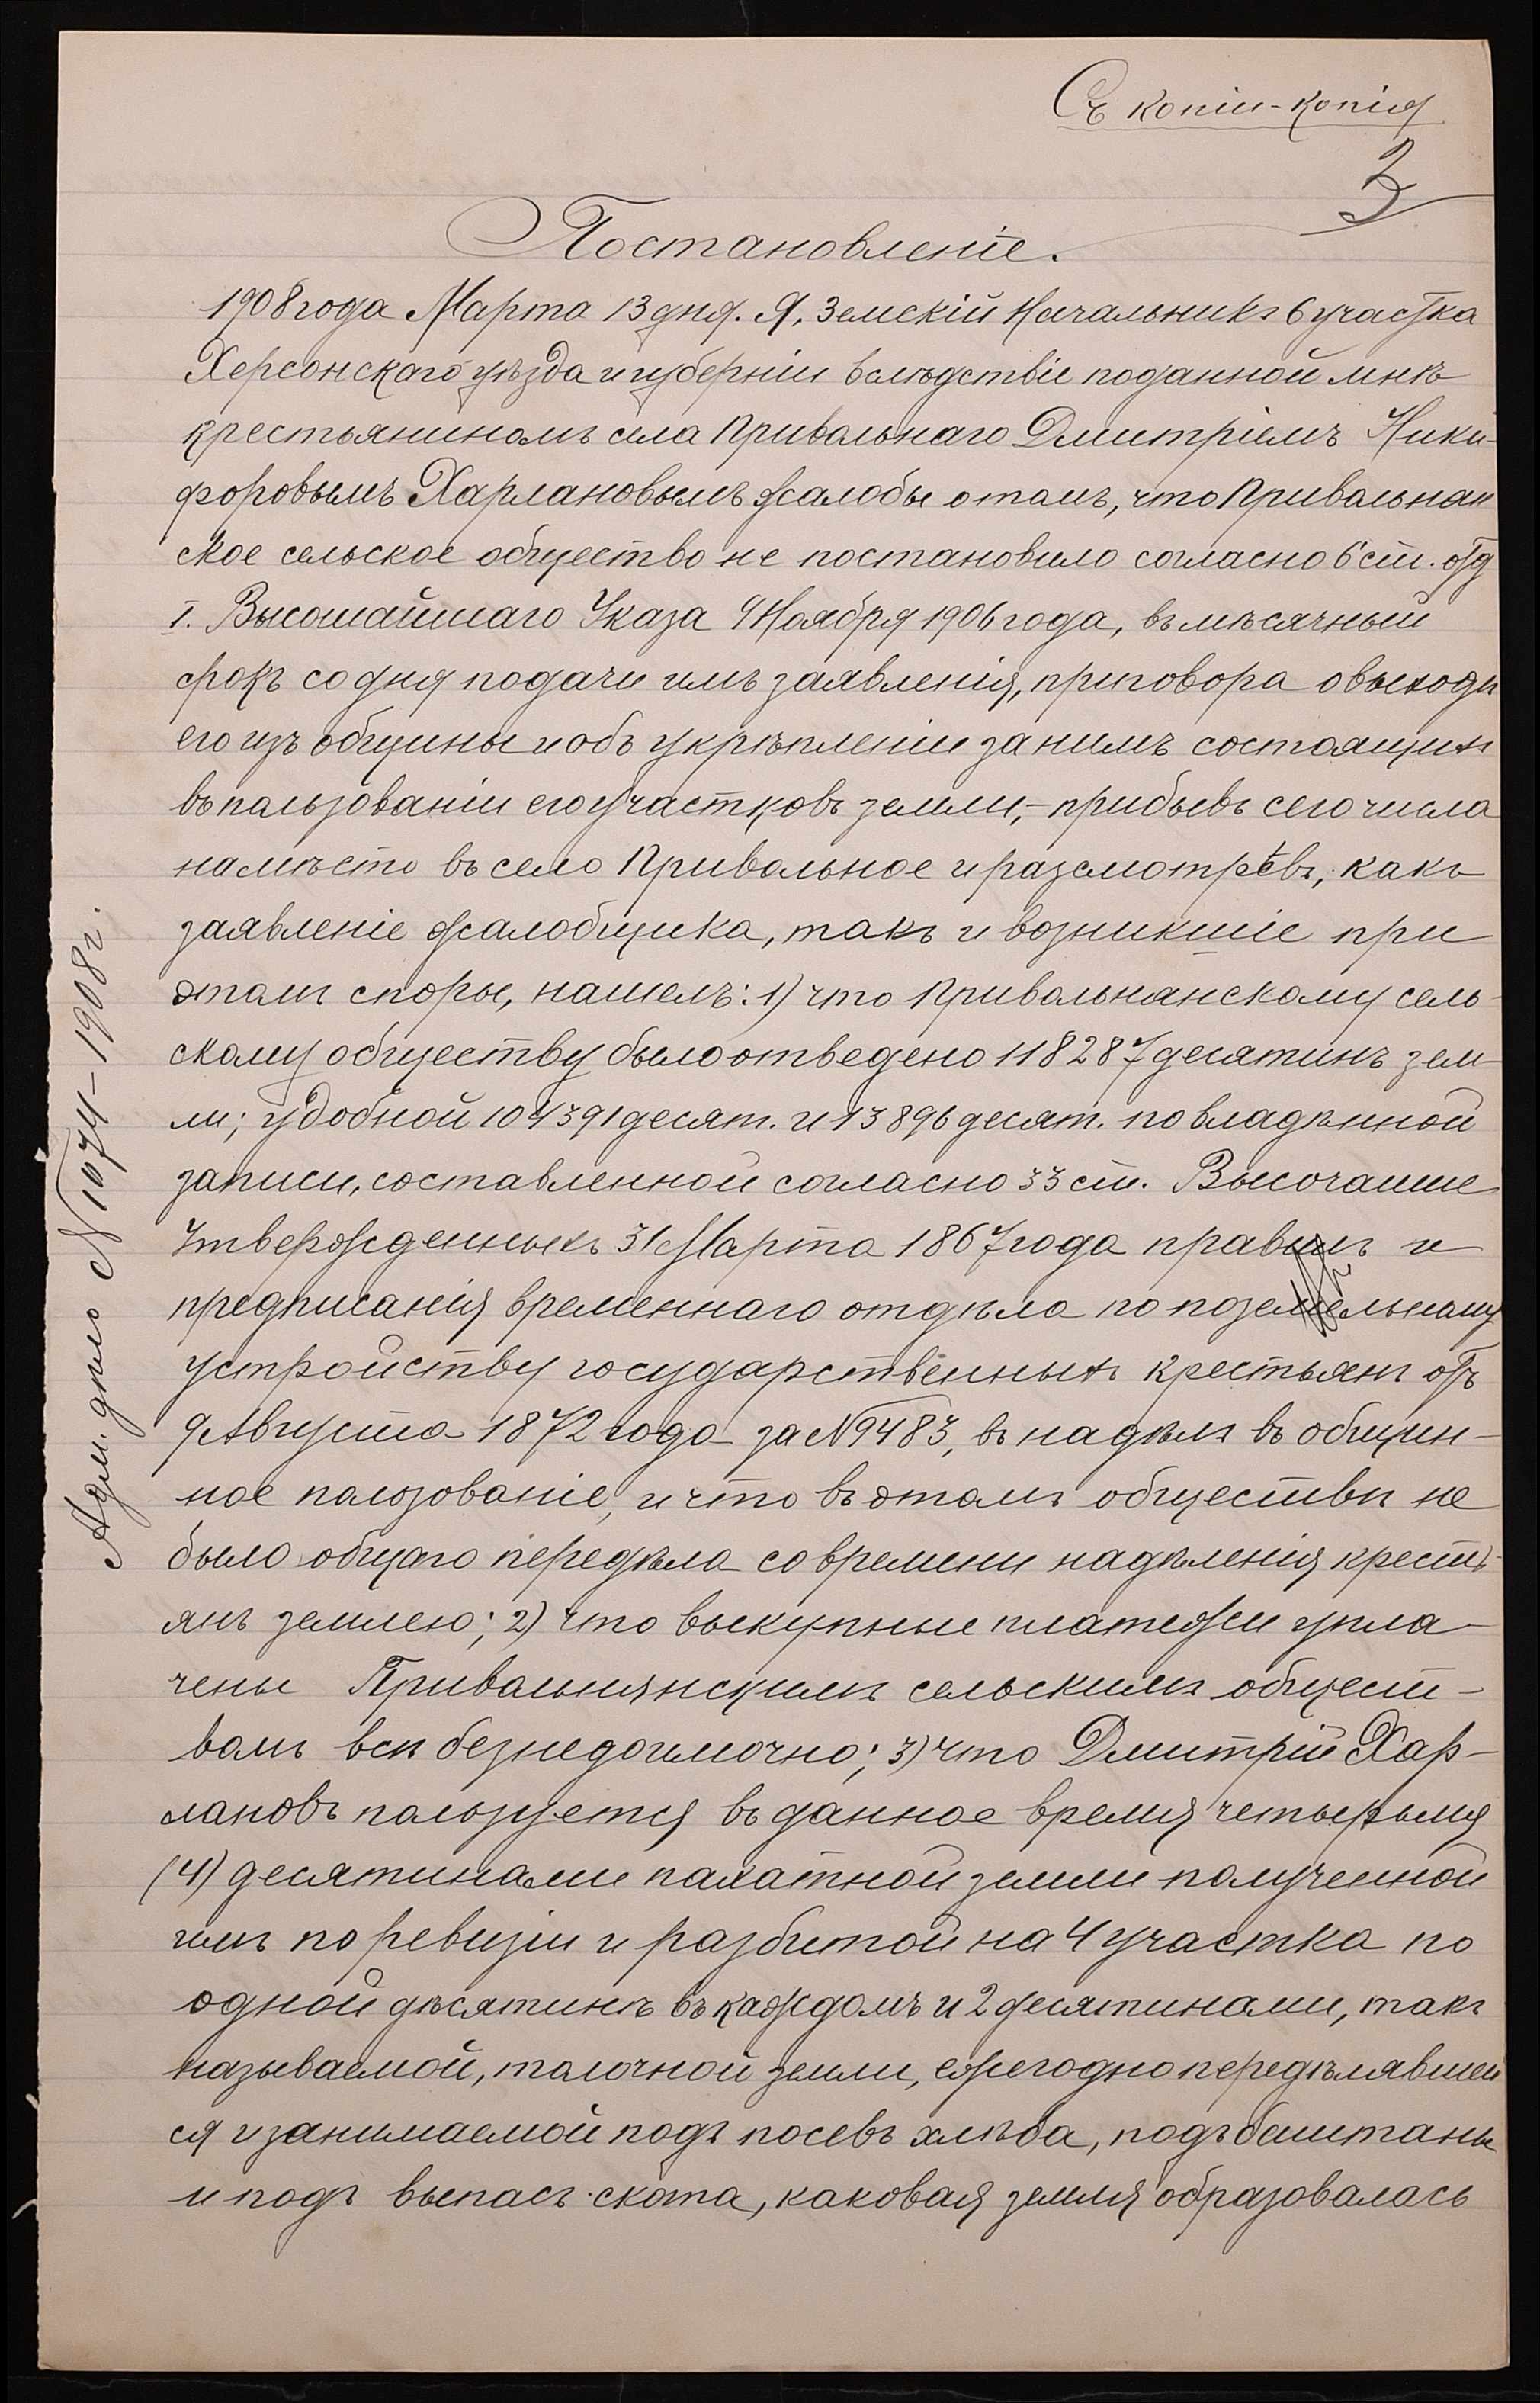 Съ копіи-копія
3
Постановленіе.
1908 года Марта 13 дня. Я, Земскій Начальникъ 6 участка
Херсонскаго уѣзда и губерніи вслѣдствіе поданной мнѣ
крестьяниномъ села Привольнаго Дмитріемъ Ники-
форовымъ Харлановымъ жалобы о томъ, что Привольнян
ское сельское общество не постановило согласно 6 ст. отд
I. Высочайшаго Указа 9 Ноября 1906 года, въ мѣсячный
срокъ со дня подачи имъ заявленія, приговора о выходѣ
его изъ общины и объ укрѣпленіи за нимъ состоящихъ
въ пользованіи его участковъ земли,- прибывъ сего числа
на мѣсто въ село Привольное и разсмотрѣвъ, какъ
заявленіе жалобщика, такъ и возникшіе при
этомъ споры, нашелъ: 1) что Привольнянскому сель-
скому обществу было отведено 118287 десятинъ зем-
ли; удобной 104391 десят. и 13896 десят. по владѣнной
записи, составленной согласно 33 ст. Высочайше
Утвержденныхъ 31 Марта 1867 года правилъ и
предписанія временнаго отдѣла по поземельному
устройству государственныхъ крестьянъ отъ
9 Августа 1872 года за №9483, въ надѣлъ въ общин-
ное пользованіе, и что въ этомъ обществѣ не
было общаго передѣла со времени надѣленія кресть-
янъ землею; 2) что выкупные платежи упла-
чены Привольнянскимъ сельскимъ общест-
вомъ всѣ безнедоимочно; 3) что Дмитрій Хар-
лановъ пользуется въ данное время четырьмя
(4) десятинами пахатной земли полученной
имъ по ревизіи и разбитой на 4 участка по
одной десятинѣ въ каждомъ и 2 десятинами, такъ
называемой, толочной земли, ежегодно передѣлявшей
ся и занимаемой подъ посевъ хлѣба, подъ баштаны
и подъ выпасъ скота, каковая земля образовалась
Адм. дѣло №1074-1908г.